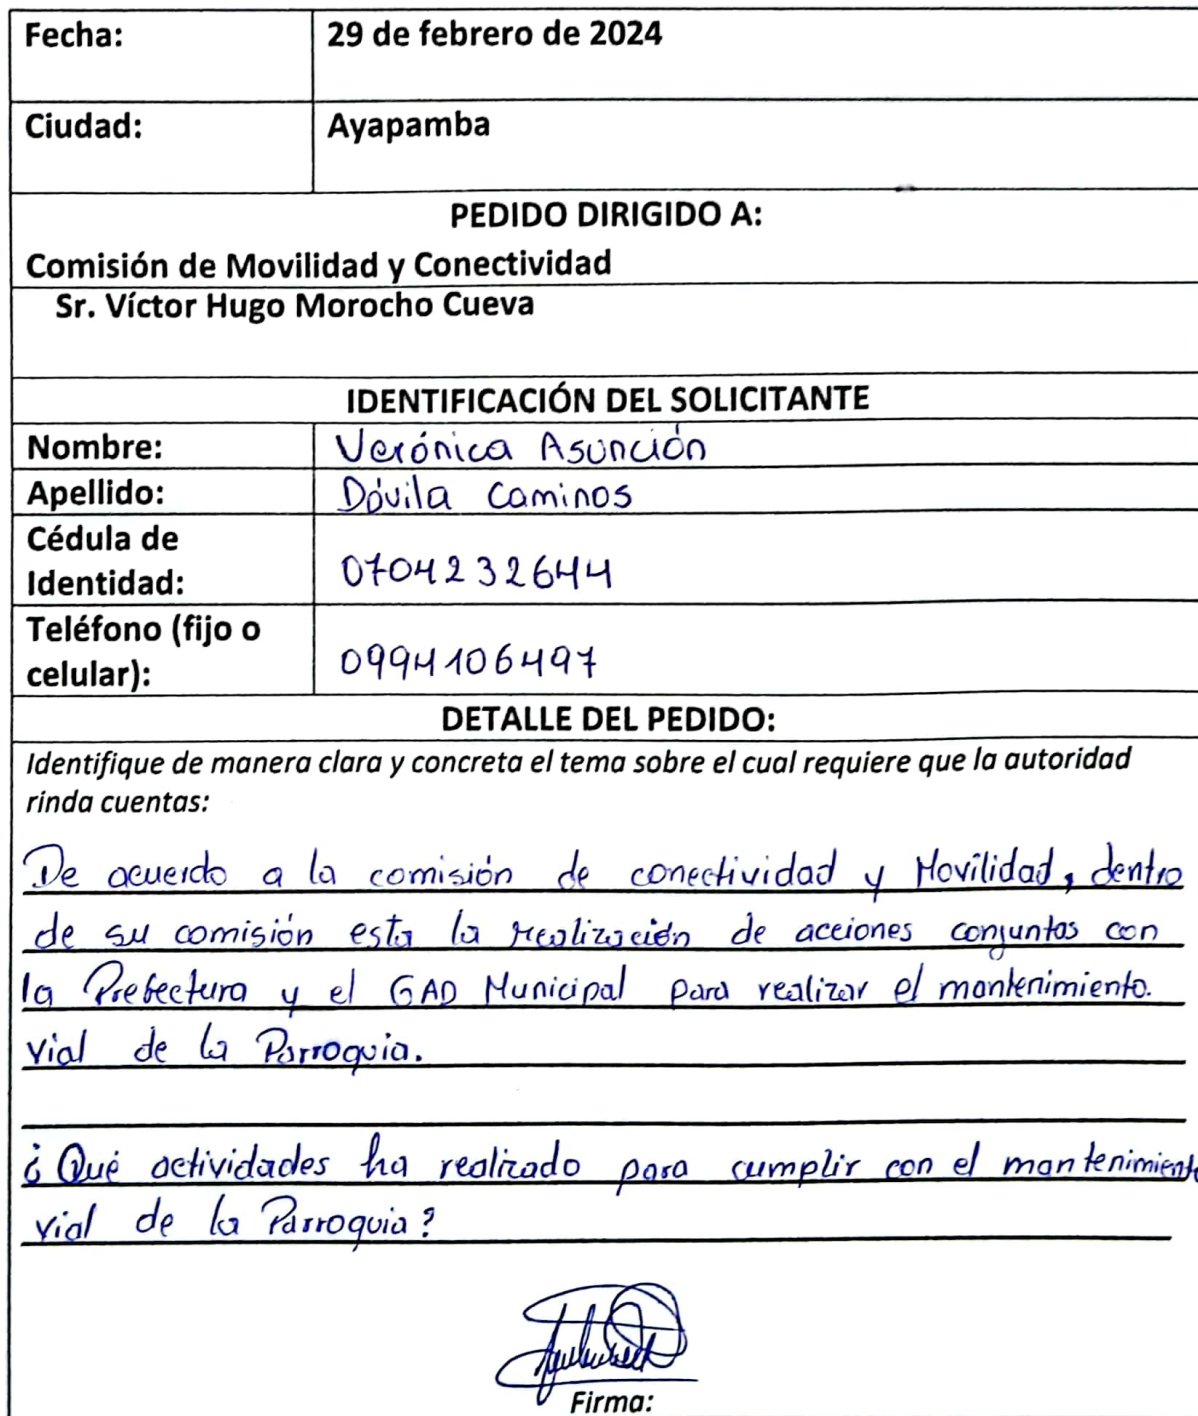 Fecha: 29 de febrero de 2024
Ciudad: Ayapamba
PEDIDO DIRIGIDO A:
Comisión de Movilidad y Conectividad
Sr. Víctor Hugo Morocho Cueva
IDENTIFICACIÓN DEL SOLICITANTE
Nombre: Verónica Asunción
Apellido: Dávila Caminos
Cédula de
Identidad: 0704232644
Teléfono (fijo o
celular): 0994106497
DETALLE DEL PEDIDO:
Identifique de manera clara y concreta el tema sobre el cual requiere que la autoridad
rinda cuentas:
De acuerdo a la comisión de conectividad y Movilidad, dentro
de su comisión esta la realización de acciones conjuntas con
la Prefectura y el GAD Municipal para realizar el mantenimiento.
vial de la Parroquia.
¿Qué actividades ha realizado para cumplir con el mantenimiento
vial de la Parroquia?
Firma: